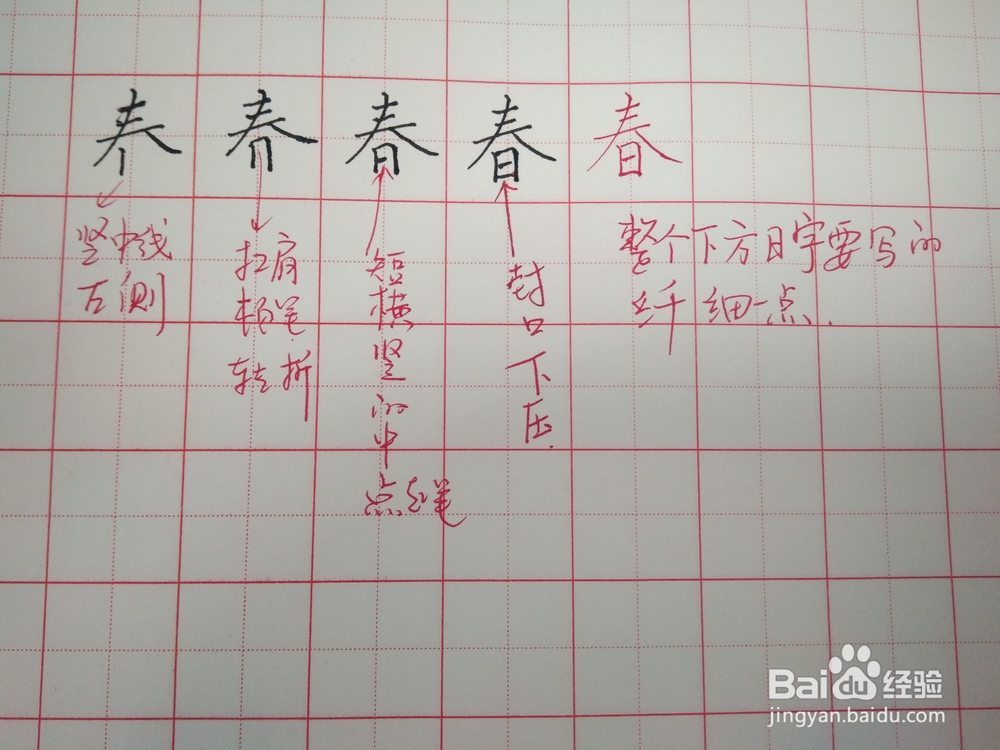 春 春 春
竖中线
左侧
扛肩
顿笔
转折
短横竖的中
点起笔
封口下压
整个下方日字要写的
纤细一点.
Bai du 经验
jingyan.baidu.com